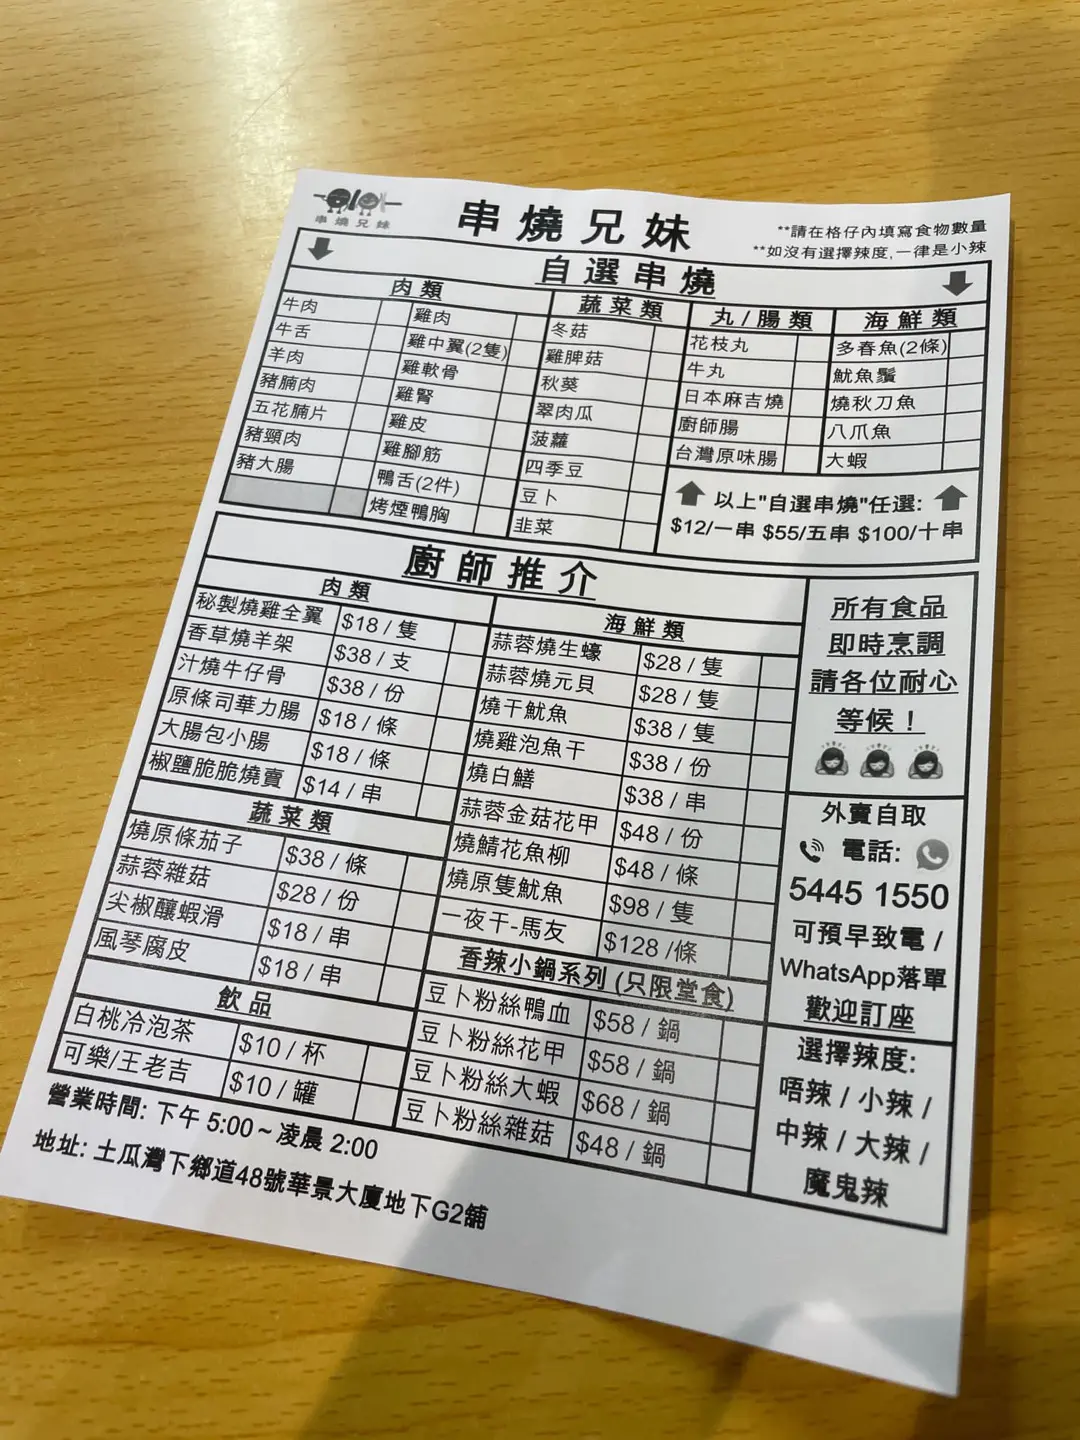 串燒兄妹
串燒兄妹
**請在格仔內填寫食物數量
**如沒有選擇辣度,一律是小辣
自選串燒
肉類
牛肉
牛舌
羊肉
豬腩肉
五花腩片
豬頸肉
豬大腸
雞肉
雞中翼(2隻)
雞軟骨
雞腎
雞皮
雞腳筋
鴨舌(2件)
烤煙鴨胸
蔬菜類
冬菇
雞脾菇
秋葵
翠肉瓜
菠蘿
四季豆
豆卜
韭菜
丸/腸類
花枝丸
牛丸
日本麻吉燒
廚師腸
台灣原味腸
海鮮類
多春魚(2條)
魷魚鬚
燒秋刀魚
八爪魚
大蝦
以上"自選串燒"任選:
$12/一串 $55/五串 $100/十串
廚師推介
肉類
秘製燒雞全翼 $18 / 隻
香草燒羊架 $38 / 支
汁燒牛仔骨 $38 / 份
原條司華力腸 $18 / 條
大腸包小腸 $18 / 條
椒鹽脆脆燒賣 $14 / 串
蔬菜類
燒原條茄子 $38 / 條
蒜蓉雜菇 $28 / 份
尖椒釀蝦滑 $18 / 串
風琴腐皮 $18 / 串
飲品
白桃冷泡茶 $10 / 杯
可樂/王老吉 $10 / 罐
海鮮類
蒜蓉燒生蠔 $28 / 隻
蒜蓉燒元貝 $28 / 隻
燒干魷魚 $38 / 隻
燒雞泡魚干 $38 / 份
燒白鱔 $38 / 串
蒜蓉金菇花甲 $48 / 份
燒鯖花魚柳 $48 / 條
燒原隻魷魚 $98 / 隻
一夜干-馬友 $128 /條
香辣小鍋系列 (只限堂食)
豆卜粉絲鴨血 $58 / 鍋
豆卜粉絲花甲 $58 / 鍋
豆卜粉絲大蝦 $68 / 鍋
豆卜粉絲雜菇 $48 / 鍋
所有食品
即時烹調
請各位耐心
等候！
外賣自取
電話:
5445 1550
可預早致電 /
WhatsApp落單
歡迎訂座
選擇辣度:
唔辣 / 小辣 /
中辣 / 大辣 /
魔鬼辣
營業時間: 下午 5:00 ~ 凌晨 2:00
地址: 土瓜灣下鄉道48號華景大廈地下G2舖